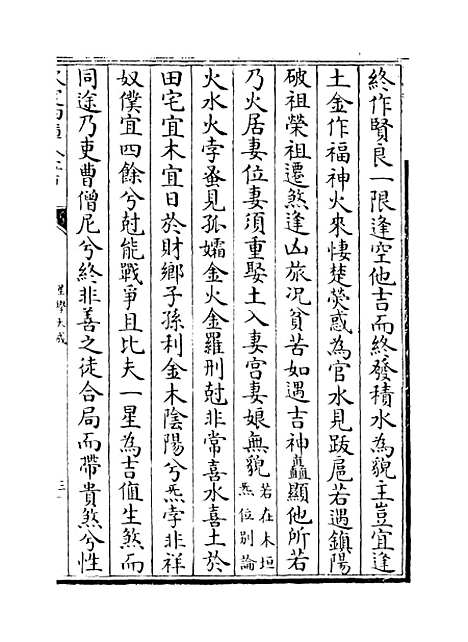 終作賢良一限逢空他吉而終發積水為貌主豈宜逢
土金作福神火來悽楚熒惑為官水見跋扈若遇鎮陽
破祖榮祖遷煞逢凶旅况貧苦如遇吉神矗顯他所若
乃火居妻位妻須重娶土入妻宫妻娘無貌若在木垣炁位别論
火水火孛蚤見孤孀金火金羅刑尅非常喜水喜土於
田宅宜木宜日於財鄉子孫利金木陰陽兮炁孛非祥
奴僕宜四餘兮尅能戰爭且比夫一星為吉值生煞而
同途乃吏曹僧尼兮終非善之徒合局而帶貴煞兮性
星學大成
三